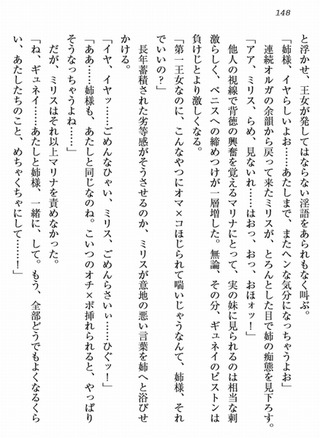 148
と浮かせ、王女が発してはならない淫語をあられもなく叫ぶ。
「姉様、イヤらしいよお……あたしまで、またヘンな気分になっちゃうよお」
連続オルガの余韻から戻って来たミリスが、とろんとした目で姉の痴態を見下ろす。
「アア、ミリス、らめ、見ないれ……はおっ、おお、おほォッ！」
他人の視線で背徳の興奮を覚えるマリナにとって、実の妹に見られるのは相当な刺
激らしく、ペニスへの締めつけが一層増した。無論、その分、ギュネイのピストンは
負けじとより激しくなる。
「第一王女なのに、こんなやつにオマ×コほじられて喘いじゃうなんて、姉様、それ
でいいの？」
長年蓄積された劣等感がそうさせるのか、ミリスが意地の悪い言葉を姉へと浴びせ
かける。
「イヤ、イヤッ……ごめんなひゃい、ミリス、ごめんらさいぃ……ひぐッ！」
「ああ……姉様も、あたしと同じなのね。こいつのオチ×ポ挿れられると、やっぱり
そうなっちゃうよね……」
だが、ミリスはそれ以上マリナを責めなかった。
「ね、ギュネイ……あたしと姉様、一緒に、して。もう、全部どうでもよくなるくら
い、あたしたちのこと、めちゃくちゃにして……！」